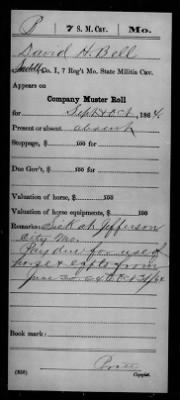 B 7 S. M. Cav. Mo.
David H. Bell
Co. I, 7 Reg't Mo. State Militia Cav.
Appears on
Company Muster Roll
for Sept & Oct, 1864.
Present or absent absent
Stoppage, $ 100 for
Due Gov't, $ 100 for
Valuation of horse, $ 100
Valuation of horse equipments, $ 100
Remarks: Sick at Jefferson
City Mo.
Pay due for use of
horse & eqpts from
June 30 64 to Oct 31/64
Book mark:
(858) Copyist.